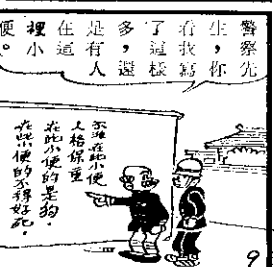 警察先
生，你
看我寫
了這樣
多，還
是有人
在這
裡小
便。
不准在此小便
人格保重
在此小便的是狗．
在此小便的不得好死．
9